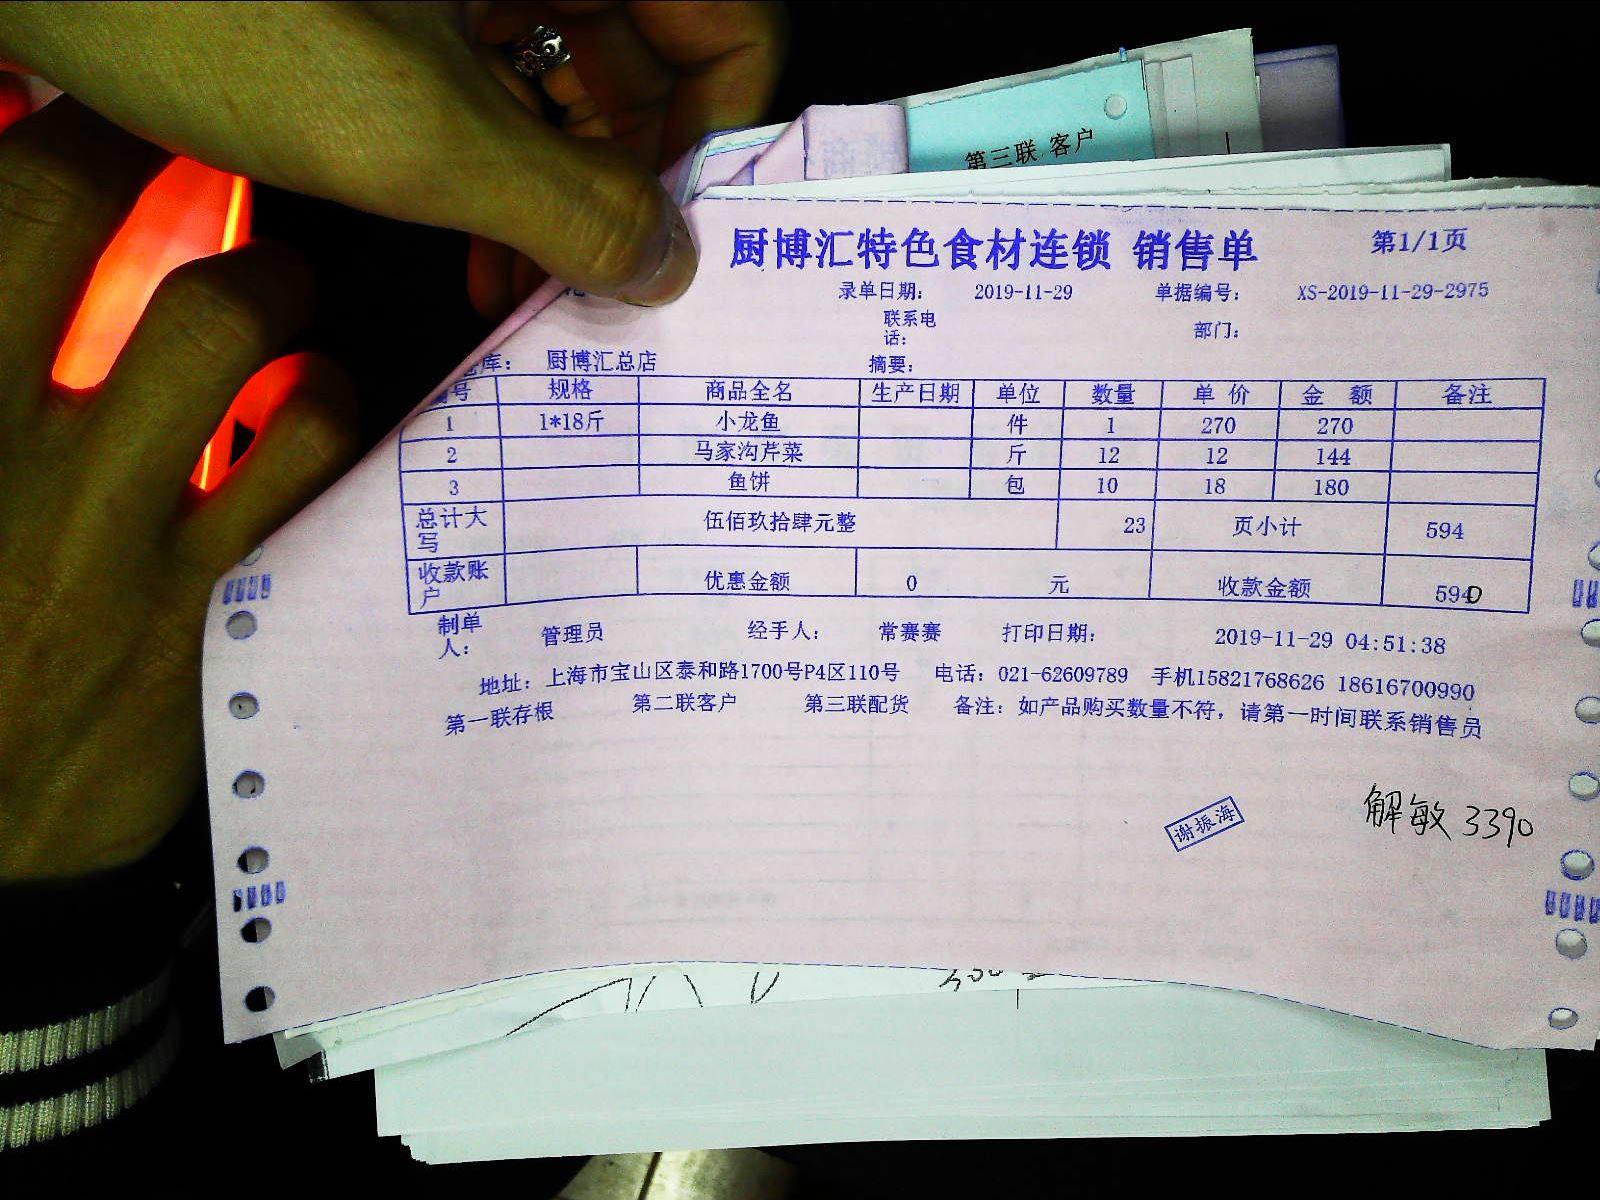 第三联 客户
厨博汇特色食材连锁 销售单 第1/1页
录单日期: 2019-11-29 单据编号: XS-2019-11-29-2975
联系电话: 部门:
库: 厨博汇总店 摘要:
号 规格 商品全名 生产日期 单位 数量 单价 金额 备注
1 1*18斤 小龙鱼 件 1 270 270
2 马家沟芹菜 斤 12 12 144
3 鱼饼 包 10 18 180
总计大写 伍佰玖拾肆元整 23 页小计 594
收款账户 优惠金额 0 元 收款金额 5940
制单人: 管理员 经手人: 常赛赛 打印日期: 2019-11-29 04:51:38
地址: 上海市宝山区泰和路1700号P4区110号 电话: 021-62609789 手机15821768626 18616700990
第一联存根 第二联客户 第三联配货 备注: 如产品购买数量不符, 请第一时间联系销售员
谢振海
解敏 3390